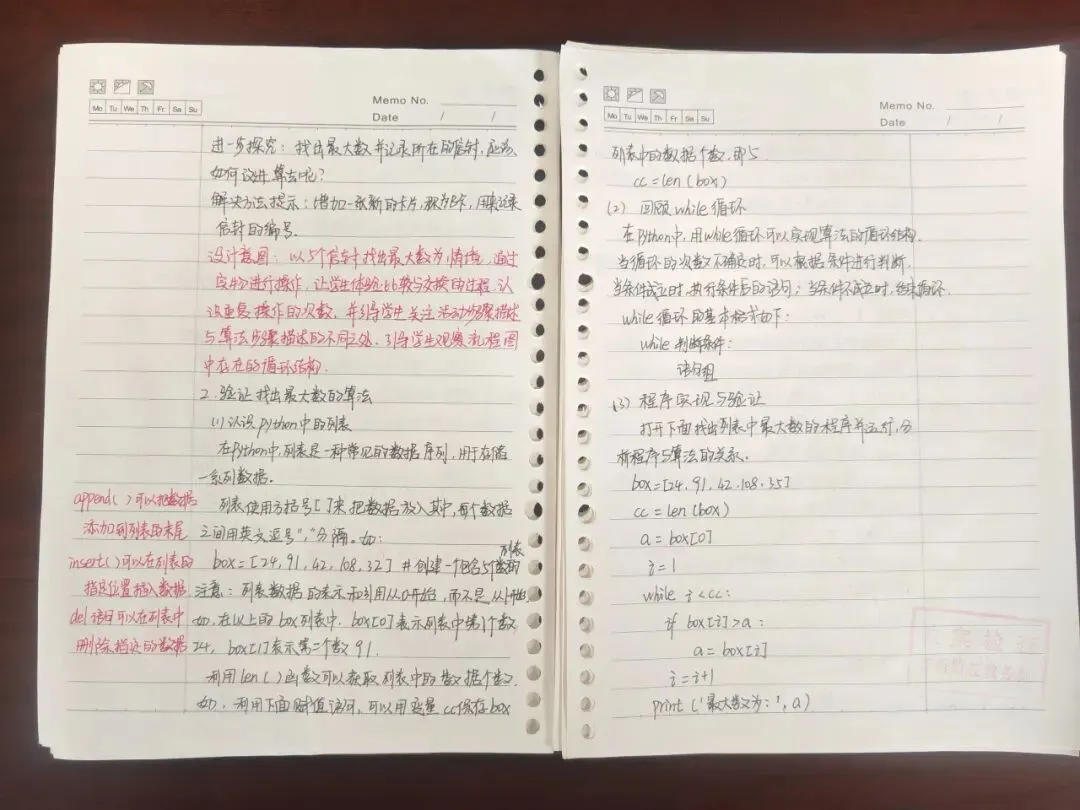 Mo Tu We Th Fr Sa Su
Memo No.
Date / /
进一步探究：找出最大数并记录所在的信封，应该
如何设计算法呢？
解决方法提示：增加一张新的卡片，称为B卡，用来记录
信封的编号。
设计意图：以5个信封找出最大数为情境，通过
实物进行操作，让学生体验比较与交换的过程，认
识重复操作的次数，并引导学生关注活动步骤描述
与算法步骤描述的不同之处，引导学生观察流程图
中存在的循环结构。
2.验证找出最大数的算法
(1)认识python中的列表
在python中，列表是一种常见的数据序列，用于存储
一系列数据。
列表使用方括号[]来把数据放入其中，每个数据
之间用英文逗号","分隔。如：
box=[24,91,42,108,32] #创建一个包含5个数的列表
注意：列表数据的表示和引用从0开始，而不是从1开始。
如，在以上的box列表中，box[0]表示列表中第1个数
24，box[1]表示第二个数91.
利用len()函数可以获取列表中的数据个数.
如，利用下面赋值语句，可以用变量cc保存box
append()可以把数据
添加到列表的末尾
insert()可以在列表的
指定位置插入数据
del语句可以在列表中
删除指定的数据
Mo Tu We Th Fr Sa Su
Memo No.
Date / /
列表中的数据个数，即5.
cc=len(box)
(2) 回顾while循环
在Python中，用while循环可以实现算法的循环结构.
当循环的次数不确定时，可以根据条件进行判断.
当条件成立时，执行条件后的语句；当条件不成立时，结束循环.
while循环的基本格式如下：
while 判断条件：
语句组
(3) 程序实现与验证
打开下面找出列表中最大数的程序并运行，分
析程序与算法的关系.
box=[24,91,42,108,35]
cc=len(box)
a=box[0]
i=1
while i<cc:
if box[i]>a:
a=box[i]
i=i+1
print('最大数为：',a)